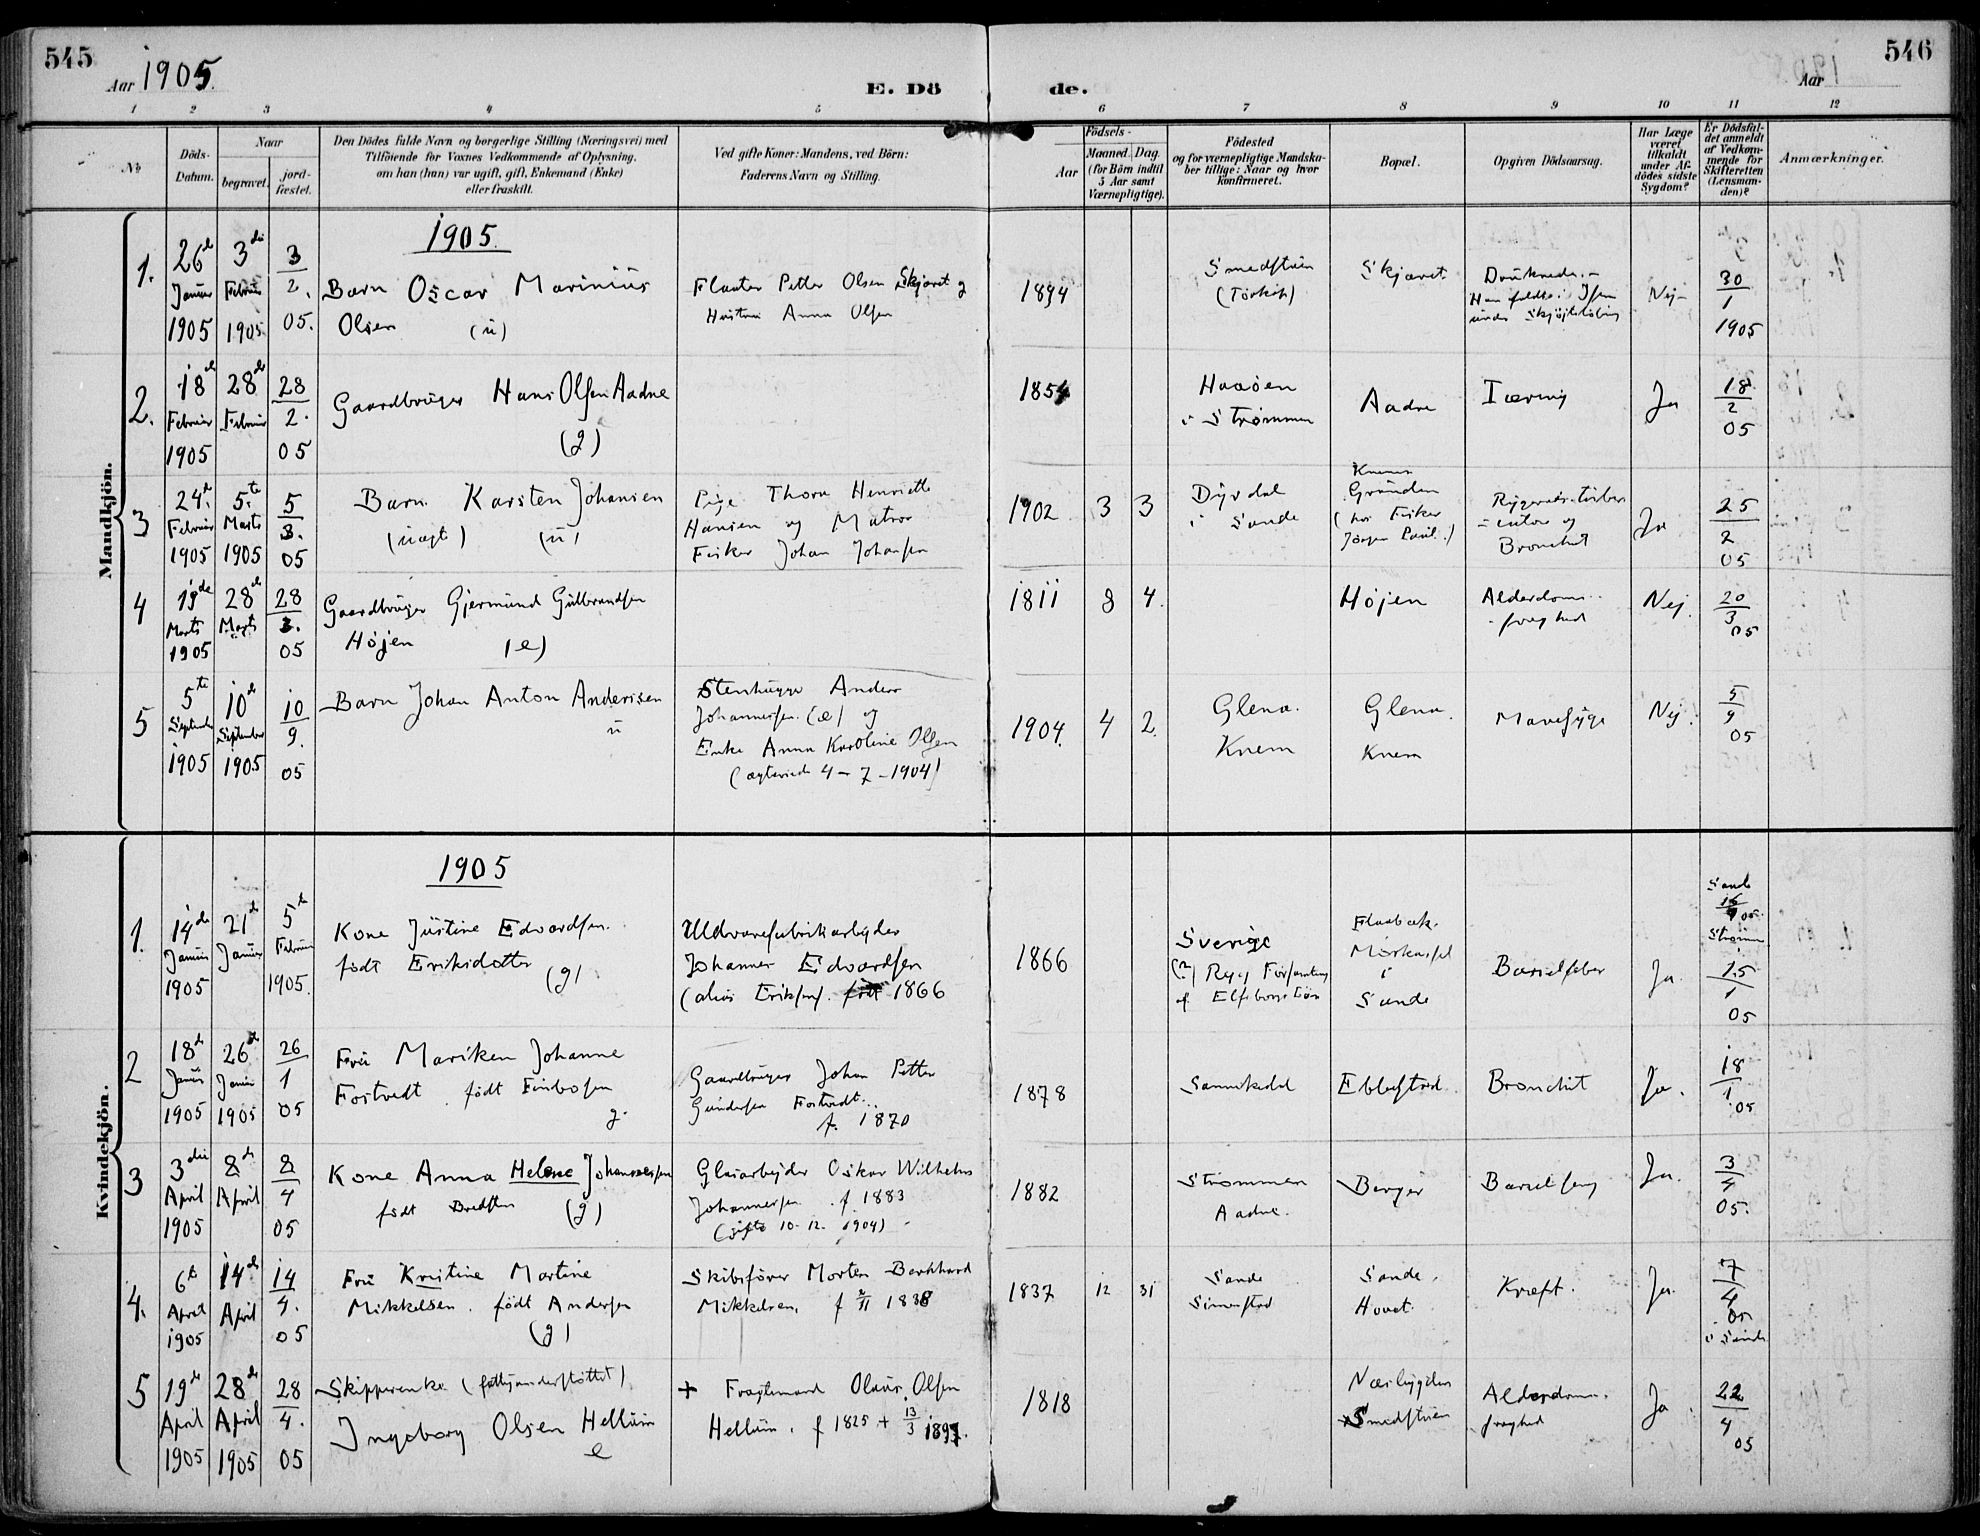 545
Aar 1905.
E. Dö
de.
Aar
546
1 2 3 4 5 6 7 8 9 10 11 12
No
Döds-Datum.
Naar
begravet.
jord-fæstet.
Den Dödes fulde Navn og borgerlige Stilling (Næringsvei) med
Tilföiende for Voxnes Vedkommende af Oplysning,
om han (hun) var ugift, gift, Enkemand (Enke)
eller fraskilt.
Ved gifte Koner: Mandens, ved Börn:
Faderens Navn og Stilling.
Födsels-
Aar
Maaned.
Dag.
(for Börn indtil
5 Aar samt
Værnepligtige).
Födested
og for værnepligtige Mandska-
ber tillige: Naar og hvor
konfirmeret.
Bopæl.
Opgiven Dödsaarsag.
Har Læge
været
tilkaldt
under Af-
dödes sidste
Sygdom?
Er Dödsfal-
det anmeldt
af Vedkom-
mende for
Skifteretten
(Lensman-
den)?
Anmærkninger.
Mandkjön.
1905
1.
26de Januar 1905
3die Februar 1905
3/2. 05.
Barn Oscar Marinius
Olsen (u)
Flaater Petter Olsen Skjæret og
Hustru Anna Olsen
1894
Smedstuen
Skjæret
Druknede.-
Han faldt i Isen
under Skjøjteløbning
Nej-
30/1 1905
2.
18de Februar 1905
28de Februar
28/2. 05
Gaardbruger Hans Olsen Aadne
(g)
1854
Haaøen
i Strømmen
Aadne
Tæring
Ja
18/2 05
3
24de Februar 1905
5te Marts 1905
5/3. 05
Barn Karsten Johansen
(uægt) (u)
Pige Thora Henriette
Hansen og Matros
Fisker Johan Johansen
1902 3 3
Dyrdal
i Sande
Knemn
Grunden
(hos Fisker
og
Bronchit
Ja
25/2 05
4
19de Marts 1905
28de Marts
28/3. 05
Gaardbruger Gjermund Gulbrandsen
Højen (e)
1811 8 4.
Højen
Alderdoms-
svaghed
Nej.
20/3 05
5
5te September 1905
10de September 1905
10/9. 05
Barn Johan Anton Andersen
u
Stenhugger Anders
Johannesen (e) og
Enke Anna Karoline Olsen
(ægteviede 4-7-1904)
1904. 4 2.
Glena.
Knem
Glena.
Knem
Mavesyge
Nej.
5/9 05
Kvindekjön.
1905
1.
14de Januar 1905
21de Januar
5te Februar 1905.
Kone Justine Edvardsen.
født Eriksdatter (g)
Uldvarefabrikarbejder
Johannes Edvardsen
(alias Eriksen). født 1866
1866
Sverige
(?) Ryg Forsamling
af Elfsborgs Län
i
Sande
Barselfeber
Ja.
Sande
Strømm
15/1 05
2
18de Januar 1905
26de Januar 1905
26/1 05
Fru Mariken Johanne
Fostvedt født Findbosen
g.
Gaardbruger Johan Petter
Gundersen Fostvedt.
f. 1870
1878
Sannikedal
Ebbestad
Bronchit
Ja.
18/1 05
3
3die April 1905
8de April
8/4 05
Kone Anna Helene Johannessen
født Bredsten (g)
Glasarbejder Oskar Wilhelm
Johannesen f. 1883
(gifte 10-12. 1904)
1882
Strømmen
Aadne.
Berger
Barselseng
Ja.
3/4 05.
4.
6te April 1905
14de April
14/4. 05
Fru Kristine Martine
Mikkelsen. født Andersen
(g)
Skibsfører Morten Barkhard
Mikkelsen, f 2/11 1838
1837 12 31
Sande
Sande.
Hovet.
Kræft.
Ja.
7/4 05
i Sande
5
19de April 1905
28de April 1905
28/4. 05
Skipperenke (fattigunderstøttet)
Ingeborg Olsen Hellum
e
+ Fragtemand Olaus Olsen
Hellum. f 1825 + 13/3 1897.
1818
Nærbygden
Smedstuen
Alderdoms.
svaghed
Ja.
22/4 05